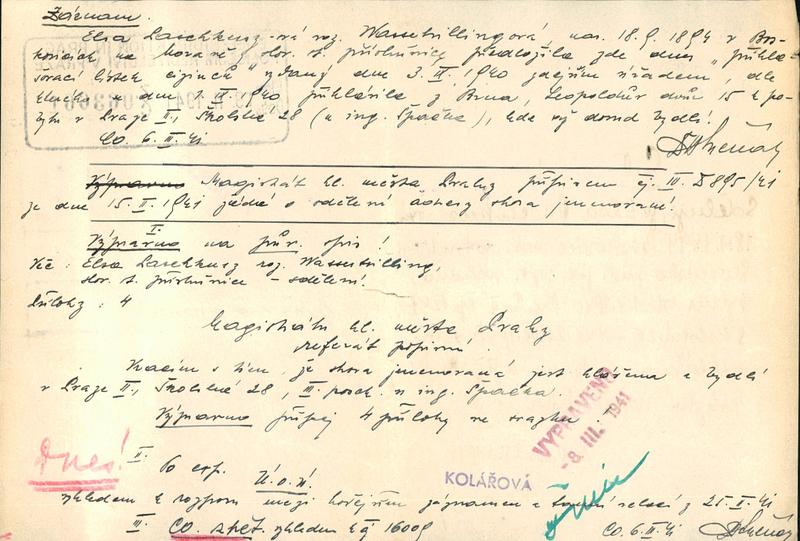 Záznam.
Elsa Laschkusz-ová roz. Wassertrillingová, nar. 18.9. 1894 v Bos-
kovicích na Moravě, slov. st. příslušnice předložila zde dnes "přihla-
šovací lístek cizinců" vydaný dne 3. II. 1940 zdejším úřadem, dle
kterého se dne 1. II. 1940 přihlásila z Brna, Leopoldův dvůr 15 k po-
bytu v Praze II., Školská 28 (u ing. Špačka), kde vý dosud bydlí.
Co. 6. III. 41
Magistrát hl. města Prahy přípisem čj. III. D895/41
ze dne 15. II. 1941 žádá o sdělení adresy shora jmenované!
I.
Výpravno na pův. spis!
Věc: Elsa Laschkusz roz. Wassertrilling,
slov. st. příslušnice - sdělení!
Přílohy: 4
Magistrátu hl. města Prahy
referát popisní
Vracím s tím, že shora jmenovaná jest hlášena a bydlí
v Praze II., Školská 28, III. posch. u ing. Špačka.
Výpravno připoj 4 přílohy ve svazku!
VYPRAVENO
-8. III. 1941
Dnes!
II.
Po exp.
Ú.o.ú!
KOLÁŘOVÁ
vzhledem k rozporu mezi hořejším záznamem a relací z 25. II. 41
III. Co. zpět. vzhledem k čj 16009
Co. 6. III. 41